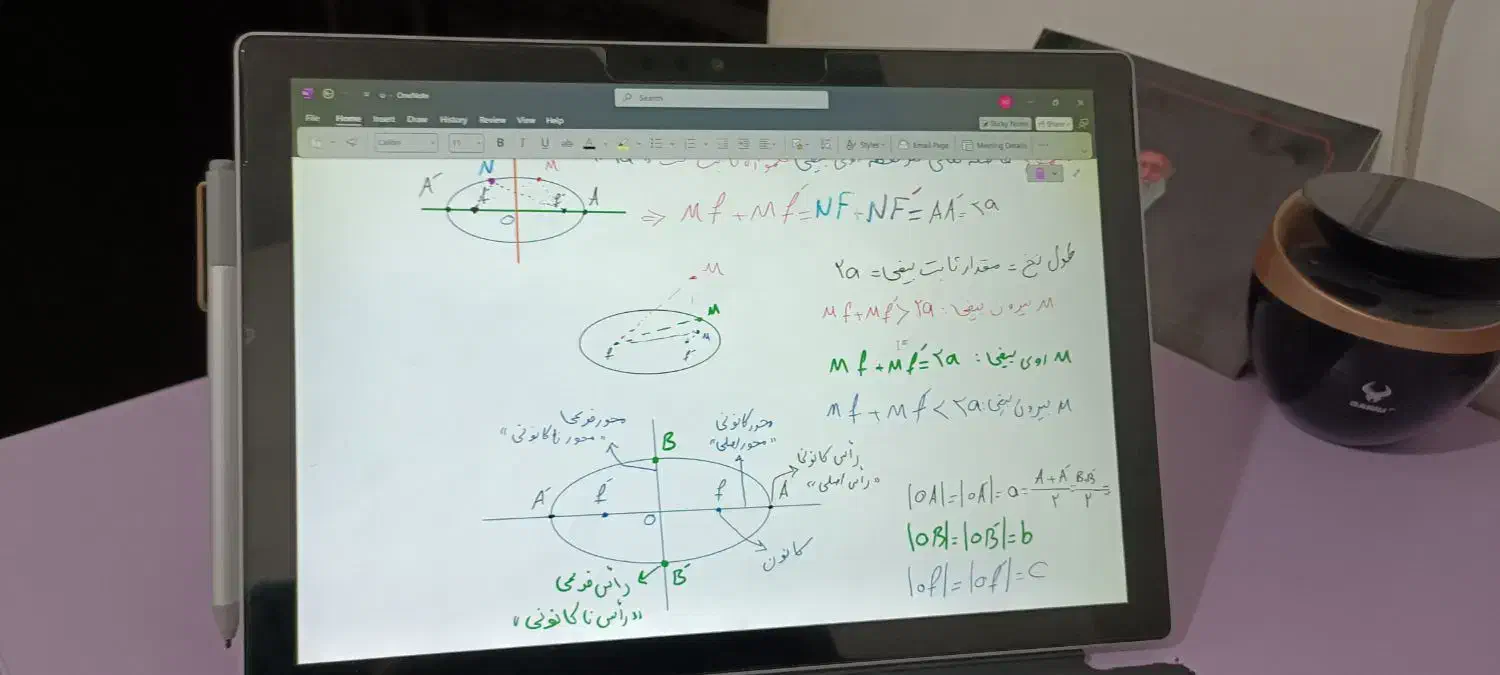 OneNote
Search
File Home Insert Draw History Review View Help
Sticky Notes Share
Calibri 11 B I U ab A A Styles Email Page Meeting Details
N M
A′ f f′ A
O
⇒ Mf + Mf′ = NF + NF′ = AA′ = ۲a
طول نخ = مقدار ثابت بیضی = ۲a
M
M
M
f f′
M بیرون بیضی: Mf + Mf′ > ۲a
M روی بیضی: Mf + Mf′ = ۲a
M بیرون بیضی: Mf + Mf′ < ۲a
محور فرعی
"محور ناکانونی"
محور کانونی
"محور اصلی"
رأس کانونی
"رأس اصلی"
B
A′ f′ O f A
کانون
B′
رأس فرعی
"رأس ناکانونی"
|OA| = |OA′| = a = A + A′ / ۲ = BB′ / ۲ =
|OB| = |OB′| = b
|of| = |of′| = c